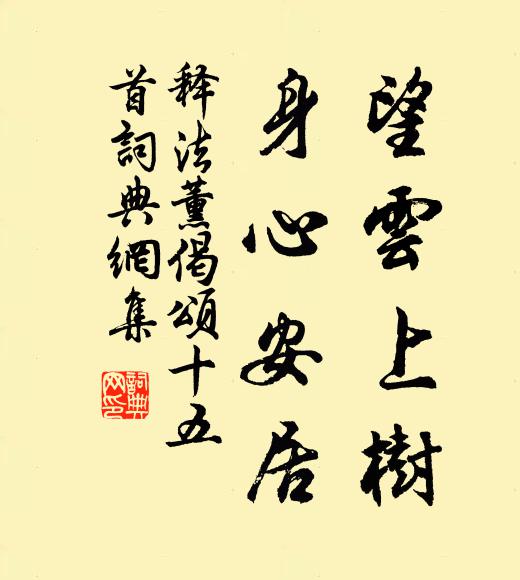 望雲上樹
身心安居
释法薰偈頌十五
首詞典網集
詞典
网印